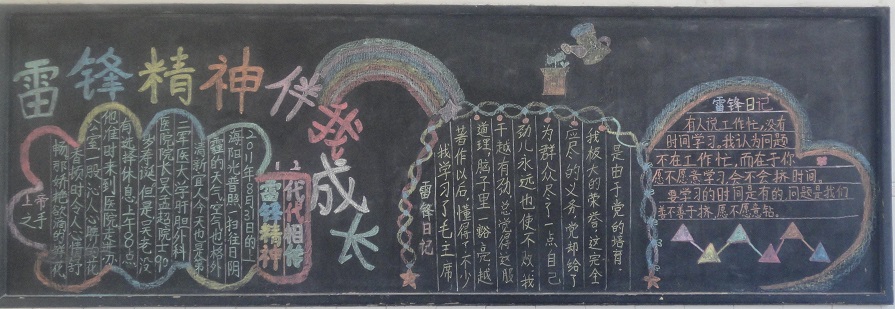 雷锋精神伴我成长
代代相传
雷锋精神
2011年8月31日的上
海阳光普照一扫往日阴
霾的天气空气也格外
清新宜人今天也是第
二军医大学肝胆外科
医院院长吴孟超院士90
多寿诞但是吴老没
有选择休息上午8点
他准时来到医院在办
公室一股沁人心脾的花
香扬
雷锋日记
我学习了毛主席
著作以后懂得了不少
道理脑子里一豁亮越
干越有劲总觉得这股
劲儿永远也使不败我
为群众尽了一点自己
应尽的义务党却给了
我极大的荣誉这完全
是由于党的培育
雷锋日记
有人说工作忙，没有
时间学习。我认为问题
不在工作忙，而在于你
愿不愿意学习会不会挤时间。
要学习的时间是有的，问题是我们
善不善于挤，愿不愿意钻。